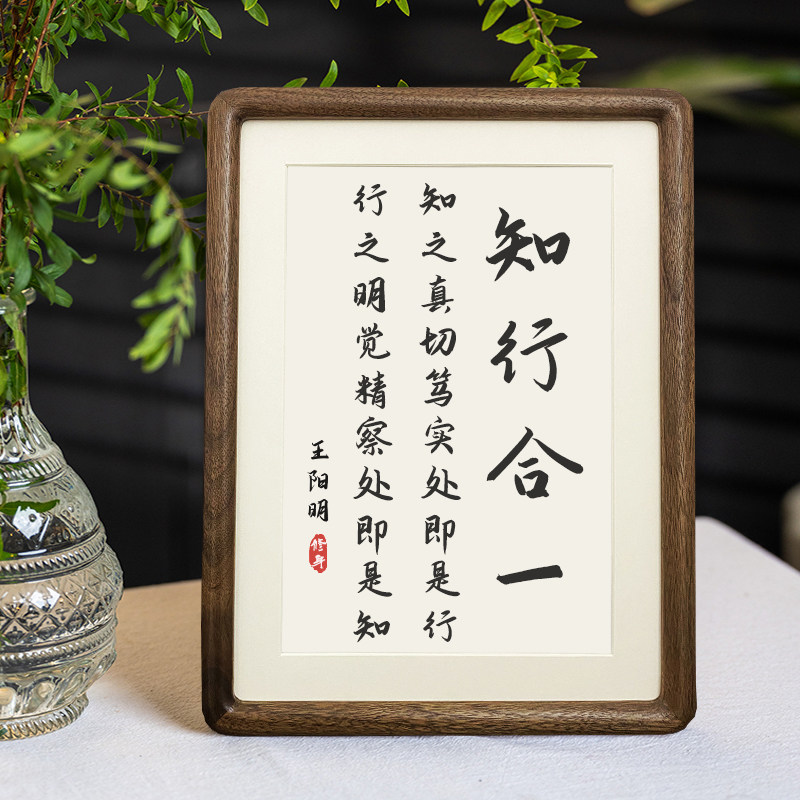 知行合一
知之真切笃实处即是行
行之明觉精察处即是知
王阳明
修身